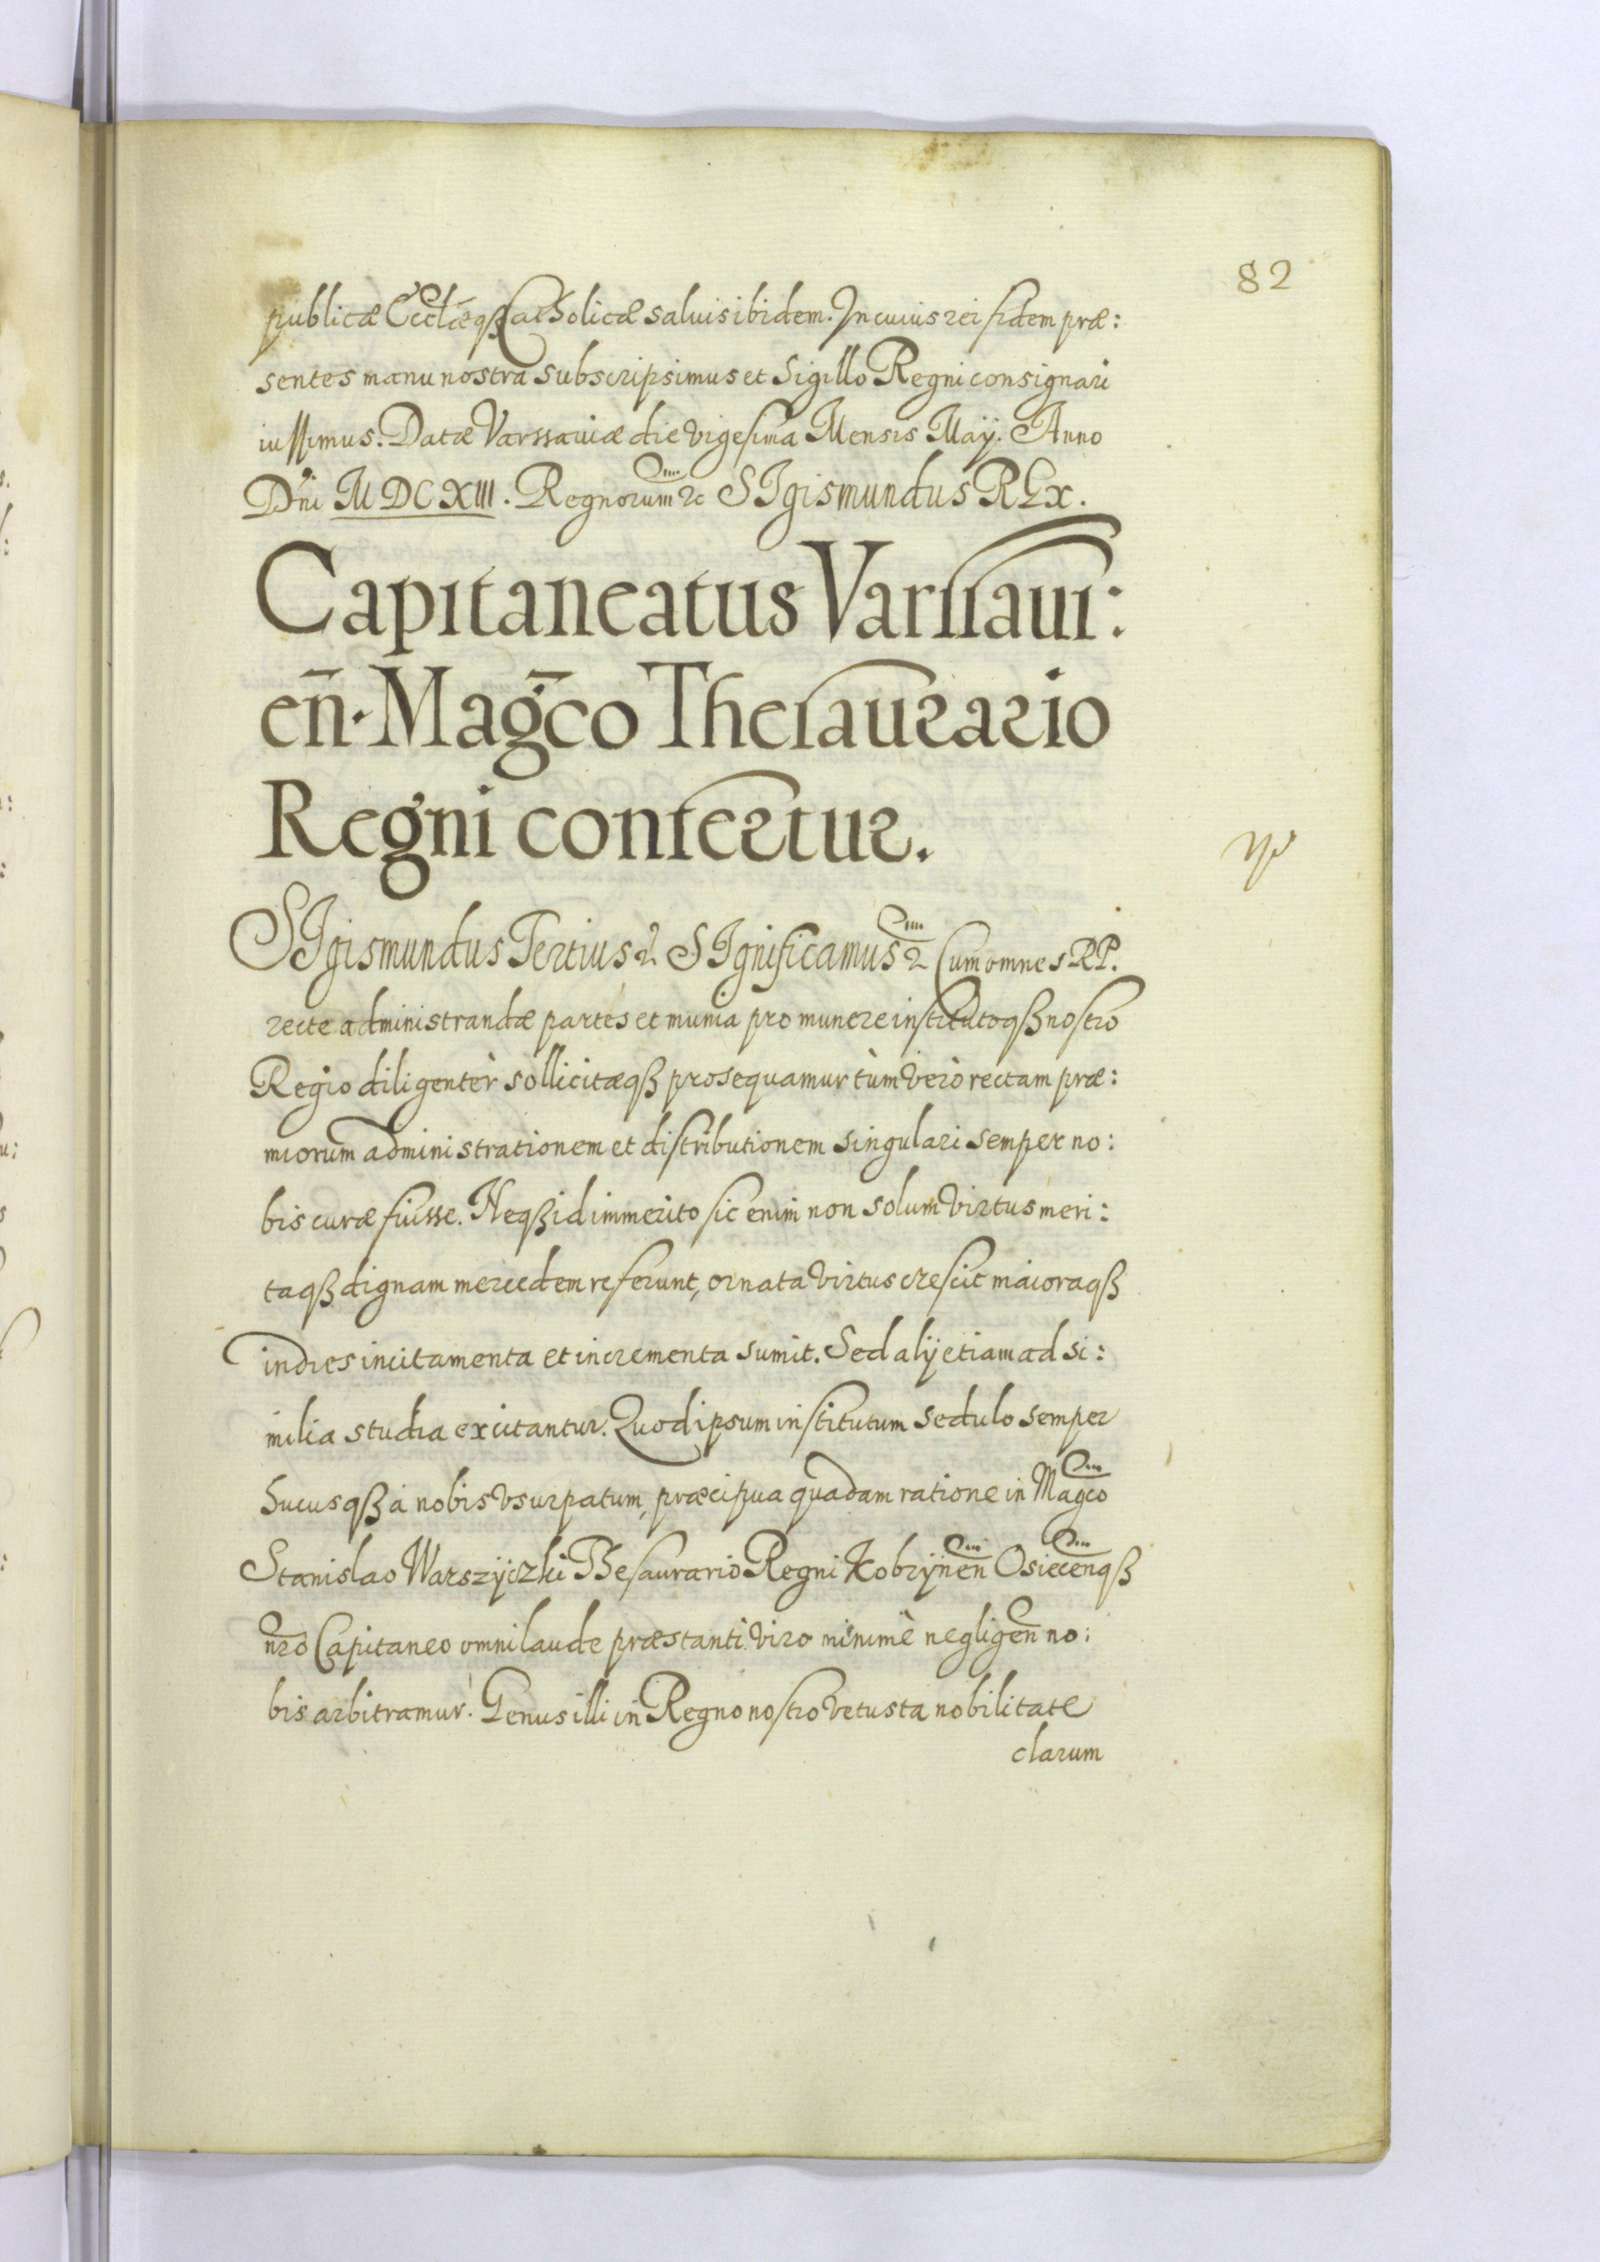 82
publicæ Eccl̃æqß Catholicæ saluis ibidem. In cuius rei fidem præ:
sentes manu nostra subscripsimus et Sigillo Regni consignari
iussimus. Datæ Varssauiæ die vigesima Mensis Maÿ. Anno
Dñi M DC XIII. Regnorum ꝛc SIgismundus REx.
Capitaneatus Varſſaui:
eñ. Mag̃co Theſaurario
Regni confertur.
SIgismundus Tertius ꝛ SIgnificamus ꝛ Cum omnes RP.
recte administrandæ partes et munia pro munere institutoqß nostro
Regio diligentèr sollicitæqß prosequamur tùm verò rectam præ:
miorum administrationem et distributionem singulari semper no:
bis curæ fuisse. Neqß id immerito sic enim non solum virtus meri:
taqß dignam mercedem referunt, ornata virtus crescit maioraqß
indies incitamenta et incrementa sumit. Sed alÿ etiam ad si:
milia studia excitantur. Quod ipsum institutum sedulo semper
hucusqß à nobis vsurpatum, præcipua quadam ratione in Magco
Stanislao Warszÿczki Thesaurario Regni Kobrÿneñ Osieceñqß
nr̃o Capitaneo omni laude præstanti viro minimè negligeñ no:
bis arbitramur. Genus illi in Regno nostro vetusta nobilitate
clarum